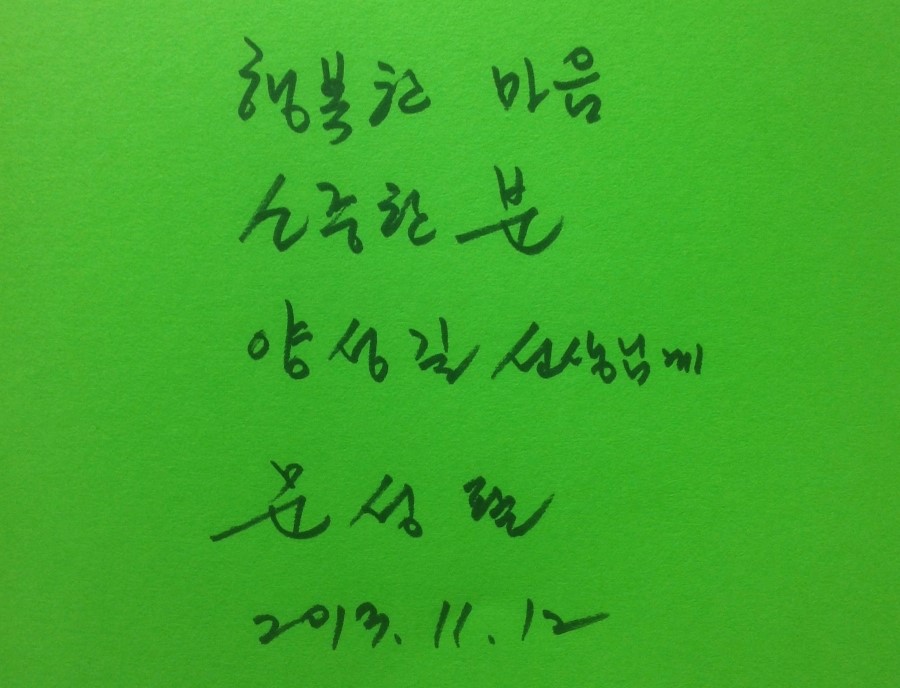 행복한 마음
소중한 분
양성길 선생님께
문성
2013. 11. 12